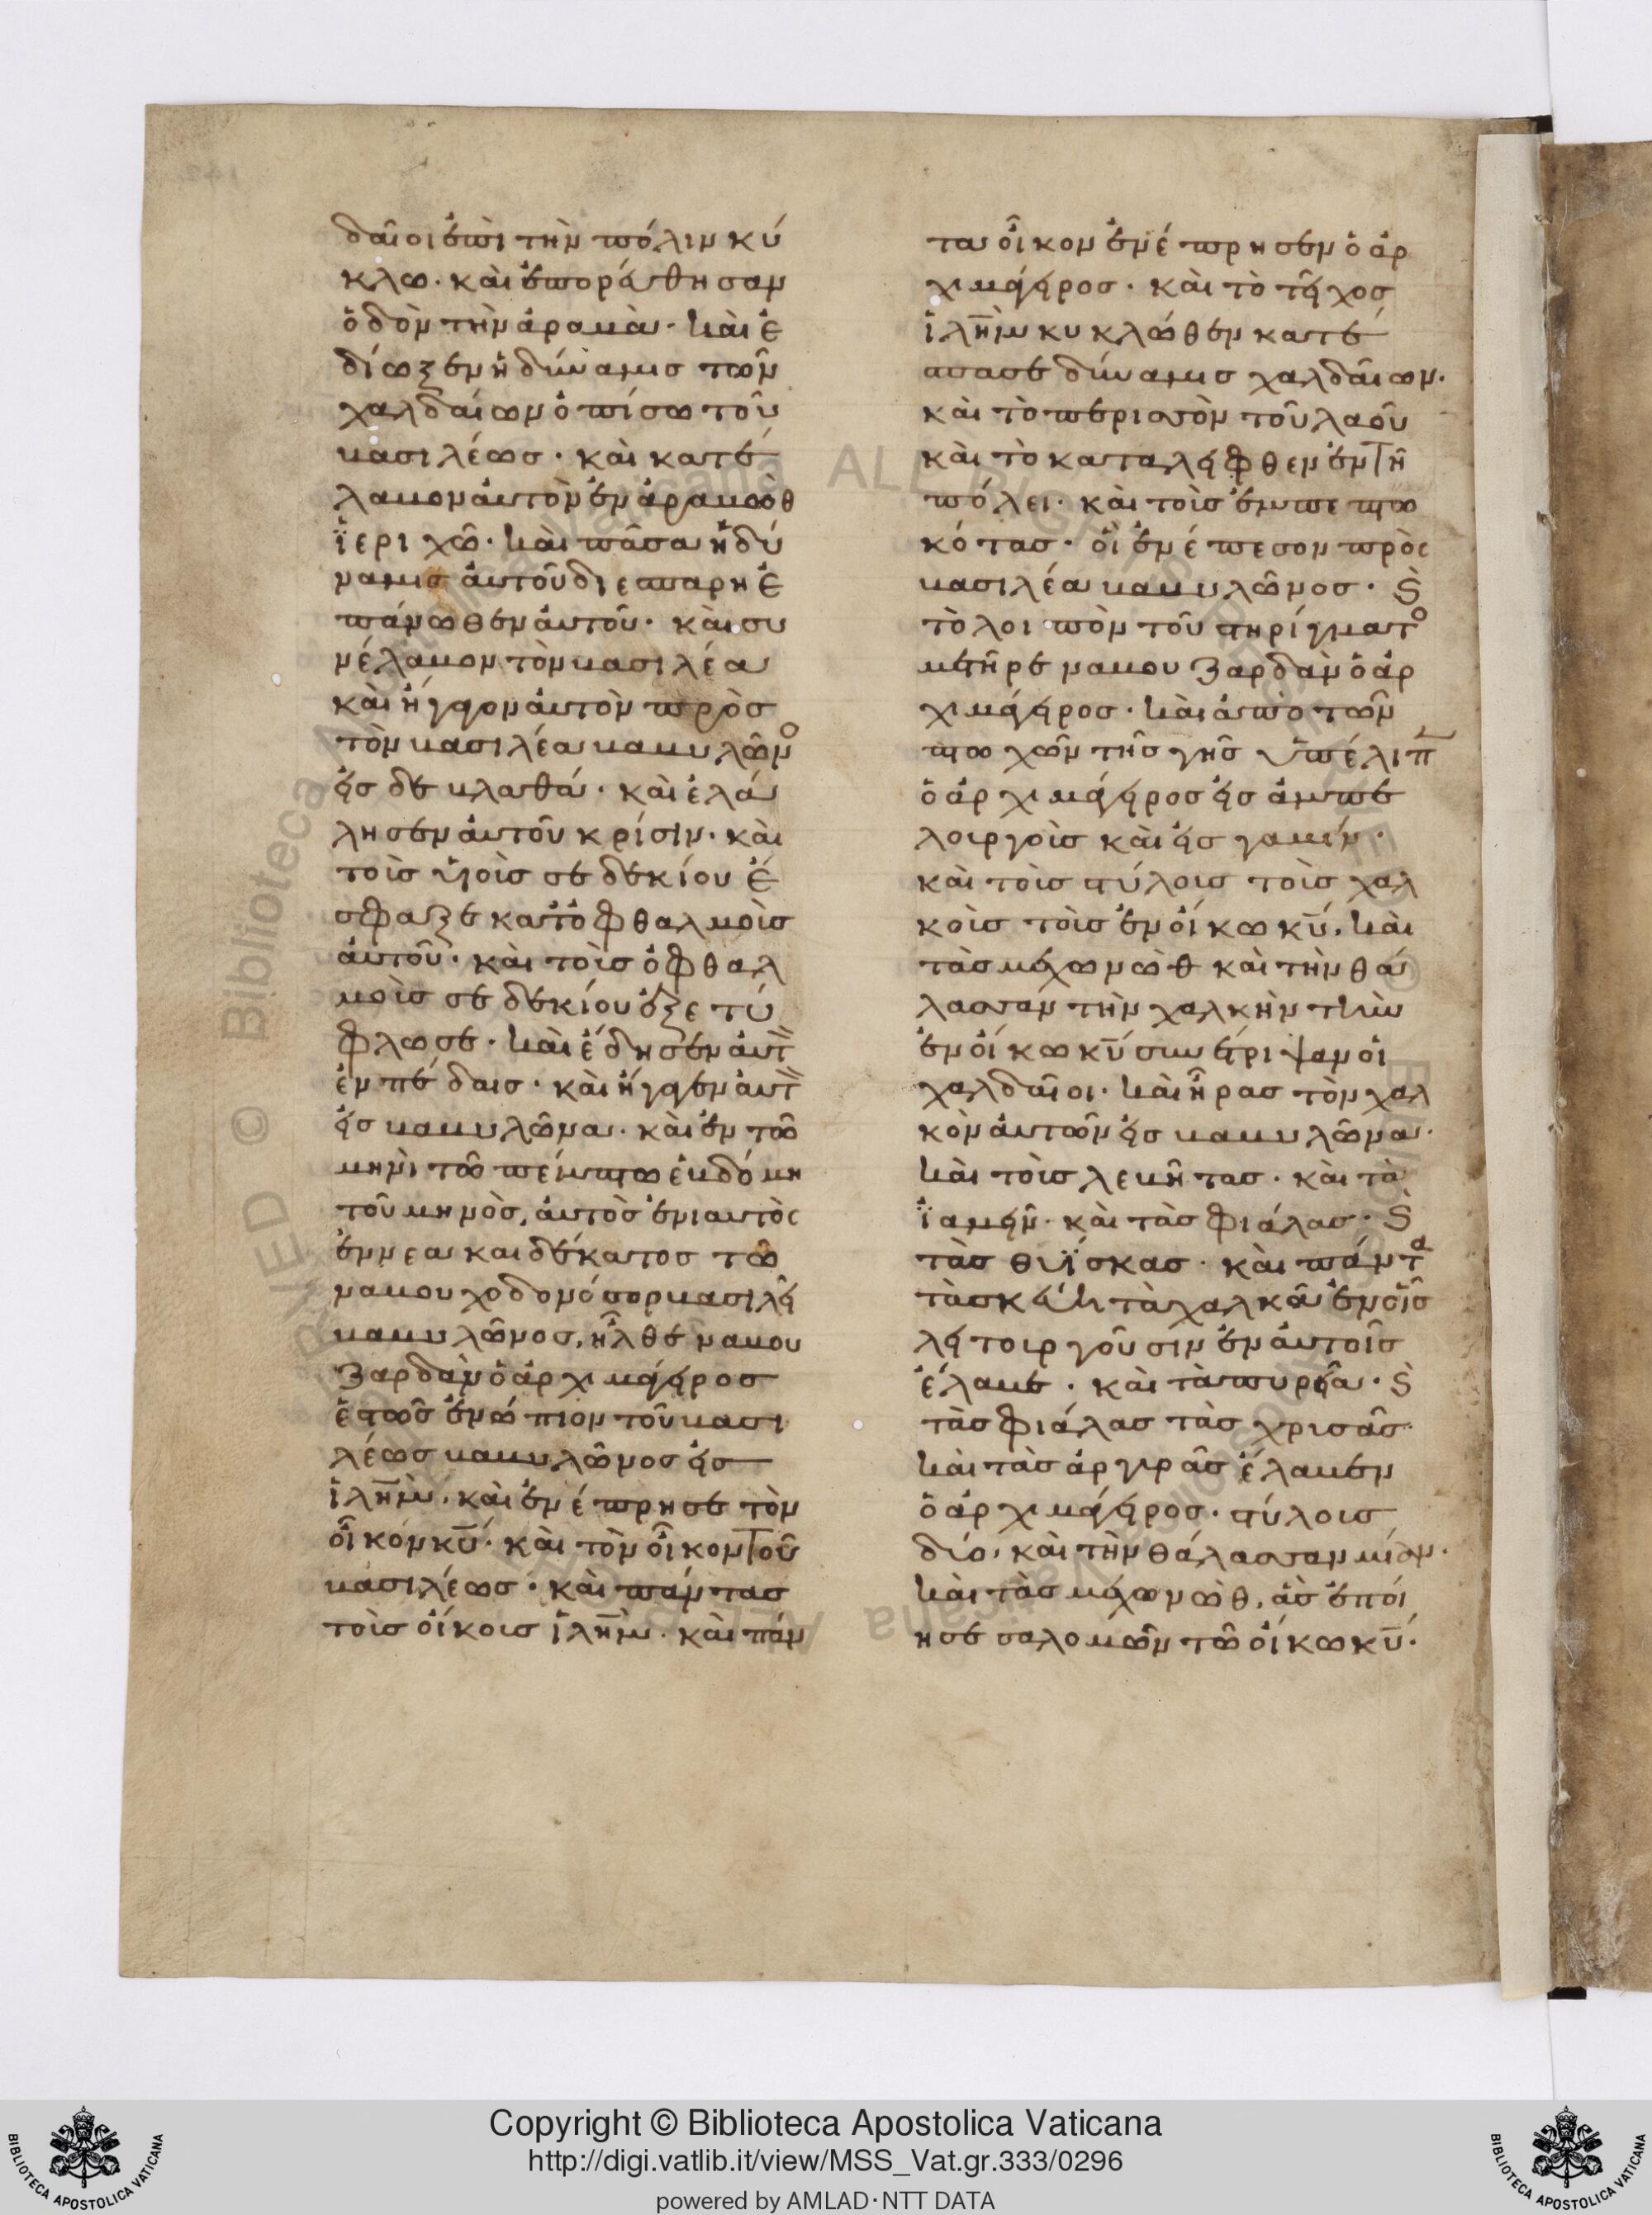 δαῖοι ἐπὶ τὴν πόλιν κύ
κλω. καὶ ἐπορεύθησαν
ὁδὸν τὴν ἀραβὰ. καὶ ἐ
δίωξεν ἡ δύναμις τῶν
χαλδαίων ὀπίσω τοῦ
βασιλέως. καὶ κατέ
λαβον αὐτὸν ἐν ἀραβὼθ
ϊεριχῶ. καὶ πᾶσα ἡ δύ
ναμις αὐτοῦ διεσπάρη ἐ
πάνωθεν αὐτοῦ. καὶ συ
νέλαβον τὸν βασιλέα
καὶ ἤγαγον αὐτὸν πρὸς
τὸν βασιλέα βαβυλῶνο
εἰς δεβλαθά. καὶ ἐλά
λησεν αὐτοῦ κρίσιν. καὶ
τοὺς υἱοὺς σεδεκίου ἔ
σφαξε κατὀφθαλμοὺς
αὐτοῦ. καὶ τοὺς ὀφθαλ
μοὺς σεδεκίου ἐξετύ
φλωσε. καὶ ἔδησεν αὐτ
ἐν πέδαις. καὶ ἤγαγεν αὐτ
εἰς βαβυλῶνα. καὶ ἐν τῶ
μηνὶ τῶ πέμπτω ἑβδόμη
τοῦ μηνὸς, αὐτὸς ἐνιαυτὸς
ἐννεακαιδέκατος τῶ
ναβουχοδονόσορ βασιλεῖ
βαβυλῶνος, ἦλθε ναβου
ζαρδὰν ὁ ἀρχιμάγειρος
ἑστὼς ἐνώπιον τοῦ βασι
λέως βαβυλῶνος εἰς
ἱλὴμ. καὶ ἐνέπρησε τὸν
οἶκον κυ. καὶ τὸν οἶκον τοῦ
βασιλέως. καὶ πάντας
τοὺς οἴκους ἱλὴμ. καὶ πάν
τα οἶκον ἐνέπρησεν ὁ ἀρ
χιμάγειρος. καὶ τὸ τεῖχος
ἱλὴμ κυκλώθεν κατέ
σπασε δύναμις χαλδαίων.
καὶ τὸ περισσὸν τοῦ λαοῦ
καὶ τὸ καταλειφθεν ἐν τῆ
πόλει. καὶ τοὺς ἐμπεπτω
κότας. οἳ ἐνέπεσον πρὸς
βασιλέα βαβυλῶνος. κ
τὸ λοιπὸν τοῦ στηρίγματο
μετῆρε ναβουζαρδὰν ὁ ἀρ
χιμάγειρος. καὶ ἀπὸ τῶν
πτωχῶν τῆς γῆς ὑπέλιπ
ὁ ἀρχιμάγειρος εἰς ἀμπε
λουργοὺς καὶ εἰς γαβίν.
καὶ τοὺς στύλους τοὺς χαλ
κοὺς τοὺς ἐν οἴκω κυ, καὶ
τὰς μεχωνὼθ καὶ τὴν θά
λασσαν τὴν χαλκὴν τὴν
ἐν οἴκω κυ συνέτριψαν οἱ
χαλδαῖοι. καὶ ἦρας τὸν χαλ
κὸν αὐτῶν εἰς βαβυλῶνα.
καὶ τοὺς λεβῆτας. καὶ τὰ
ϊαμεῖν. καὶ τὰς φιάλας. κ
τὰς θυΐσκας. καὶ πάντα
τὰ σκεύη τὰ χαλκᾶ ἐν οἷς
λειτουργοῦσιν ἐν αὐτοῖς
ἔλαβε. καὶ τὰ πυρεῖα. κ
τὰς φιάλας τὰς χρυσᾶς.
καὶ τὰς ἀργυρᾶς ἔλαβεν
ὁ ἀρχιμάγειρος. στύλους
δύο, καὶ τὴν θάλασσαν μίαν.
καὶ τὰς μεχωνὼθ, ἃς ἐποί
ησε σαλομῶν τῶ οἴκω κυ.
Copyright © Biblioteca Apostolica Vaticana
http://digi.vatlib.it/view/MSS_Vat.gr.333/0296
powered by AMLAD·NTT DATA
BIBLIOTECA APOSTOLICA VATICANA
BIBLIOTECA APOSTOLICA VATICANA